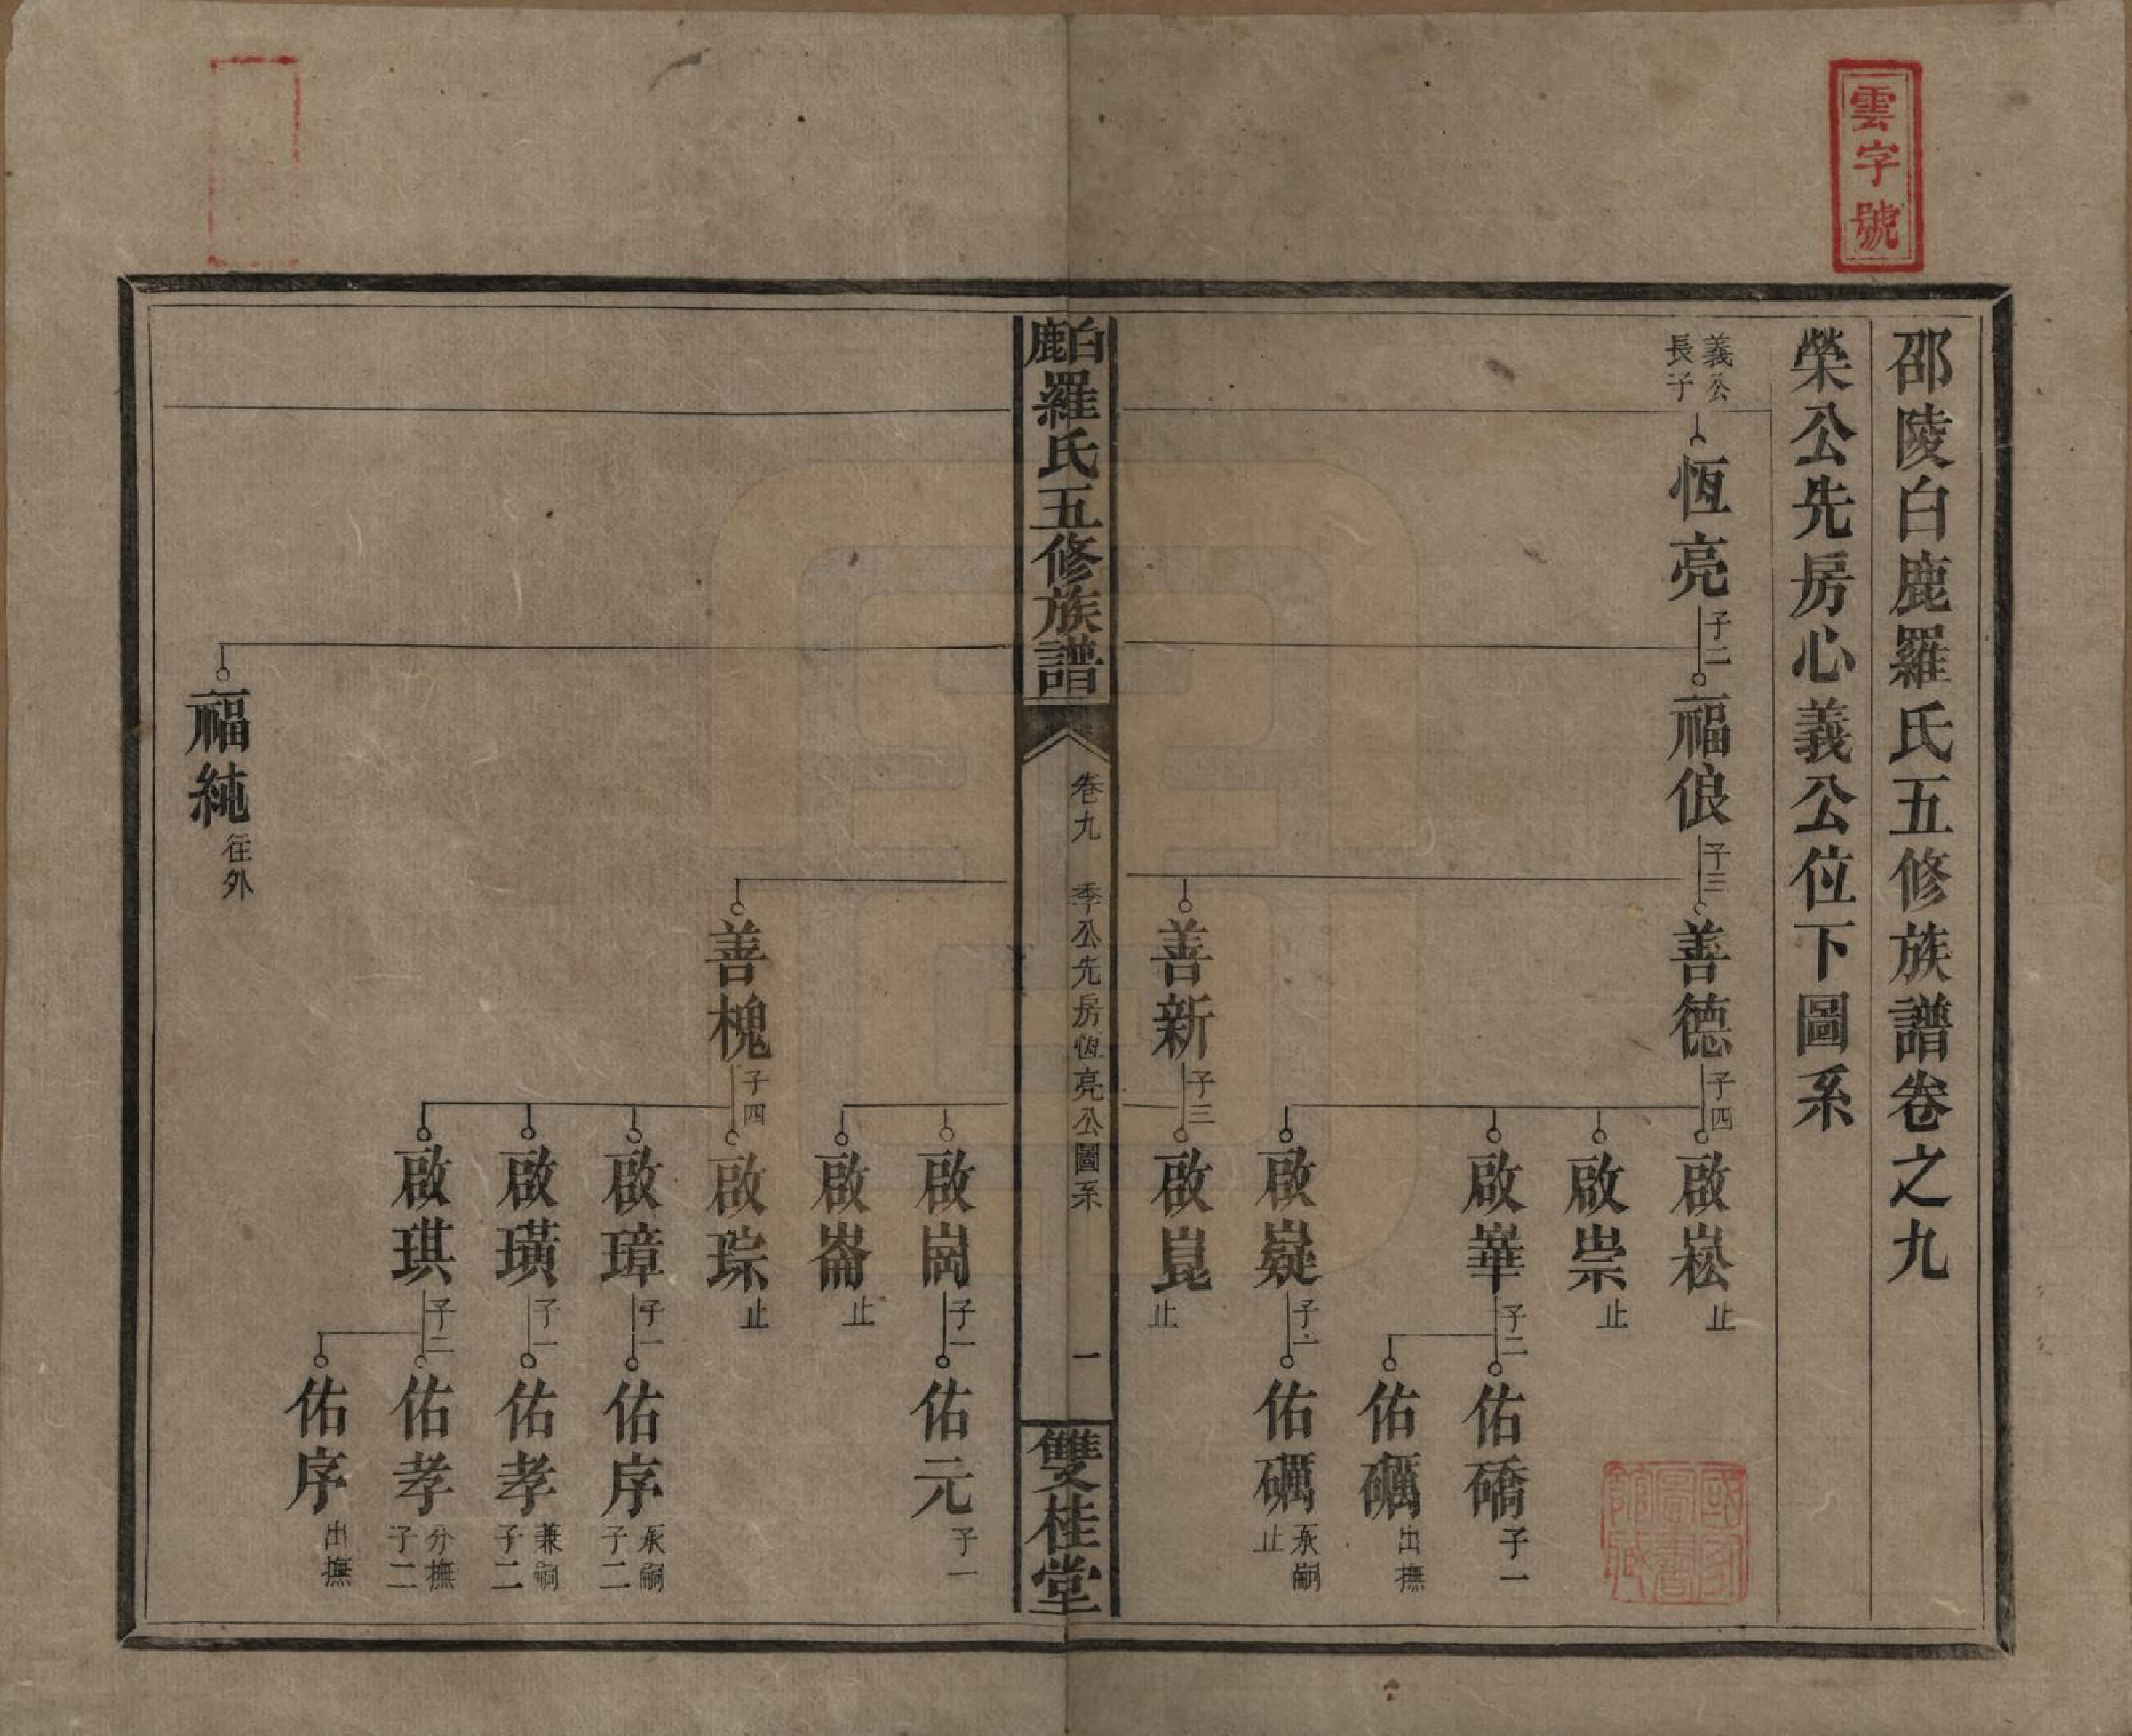 雲字號
邵陵白鹿羅氏五修族譜卷之九
榮公先房心義公位下圖系
義公
長子
恆亮
子二
福俍
子三
善德
子四
啟崧
止
啟祟
止
啟崋
子二
佑礄
子一
佑礪
出撫
啟嶷
子一
佑礪
承嗣
止
善新
子三
啟崑
止
白鹿羅氏五修族譜
卷九 季公先房恆亮公圖系
一
雙桂堂
啟崗
子一
佑元
子一
啟崙
止
善槐
子四
啟琮
止
啟璋
子一
佑序
承嗣
子二
啟璜
子一
佑孝
兼嗣
子二
啟琪
子二
佑孝
分撫
子二
佑序
出撫
福純
往外